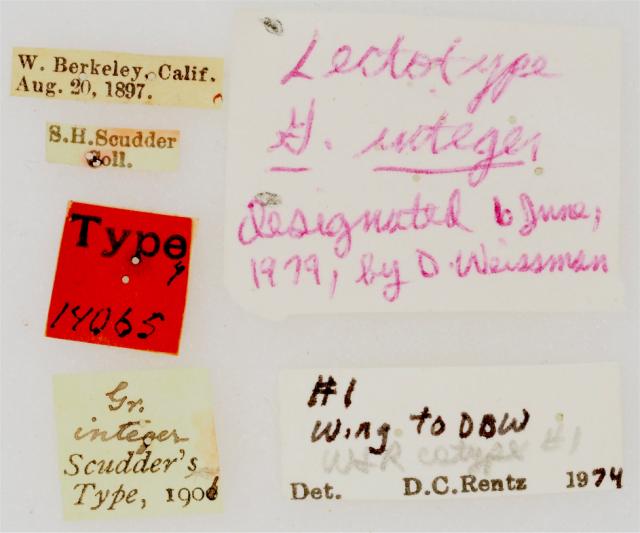 W. Berkeley, Calif.
Aug. 20, 1897.
S.H. Scudder
Coll.
Type
14065
Gr.
integer
Scudder's
Type, 1906
Lectotype
G. integer
designated 6 June,
1979, by D. Weissman
#1
Wing to DBW
cotype #1
Det. D.C. Rentz 1974